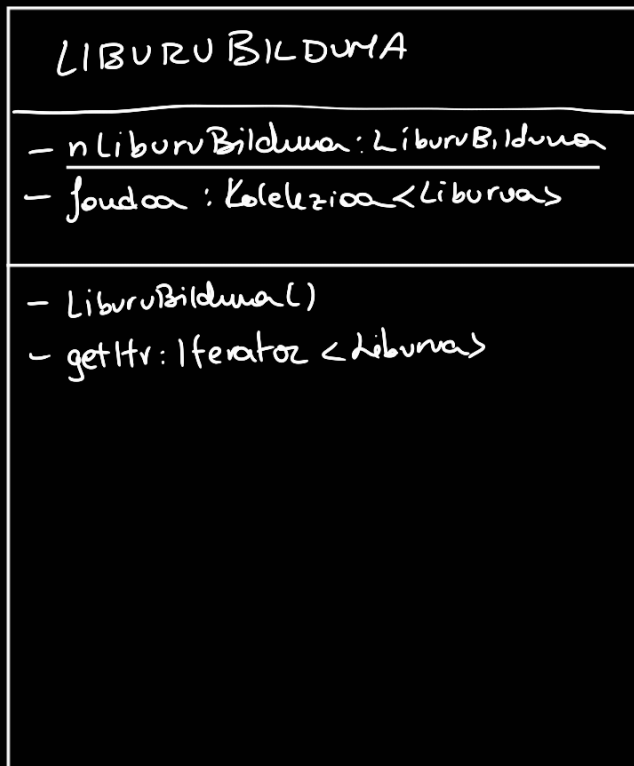 LIBURU BILDUMA
- nLiburuBilduma: LiburuBilduma
- fondoa: Kolekzioa<Liburua>
- LiburuBilduma()
- getItr: Iterator <Liburua>